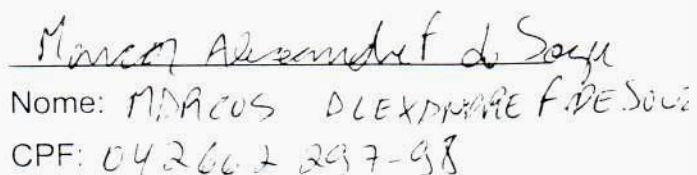 Marcos Alexandre F de Souza
Nome: MARCOS ALEXANDRE F. DE SOUZ
CPF: 042602 297-98